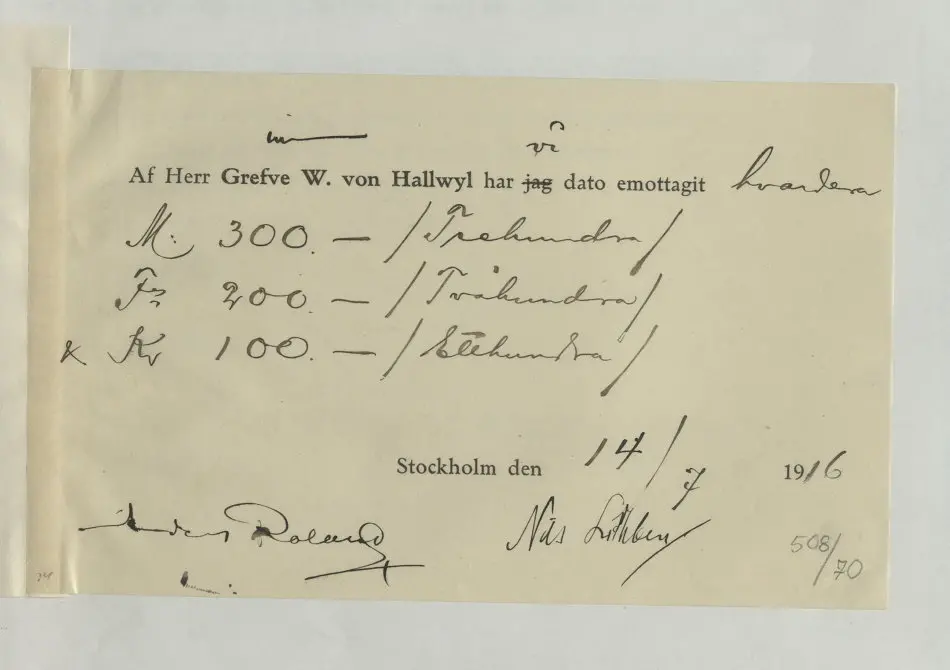 vi
Af Herr Grefve W. von Hallwyl har jag dato emottagit hvardera
M. 300. — / Trehundra /
Fr 200. — / Tvåhundra /
& Kr 100. — / Etthundra /
Stockholm den 14/7 1916
Anders Roland Nils
508/70